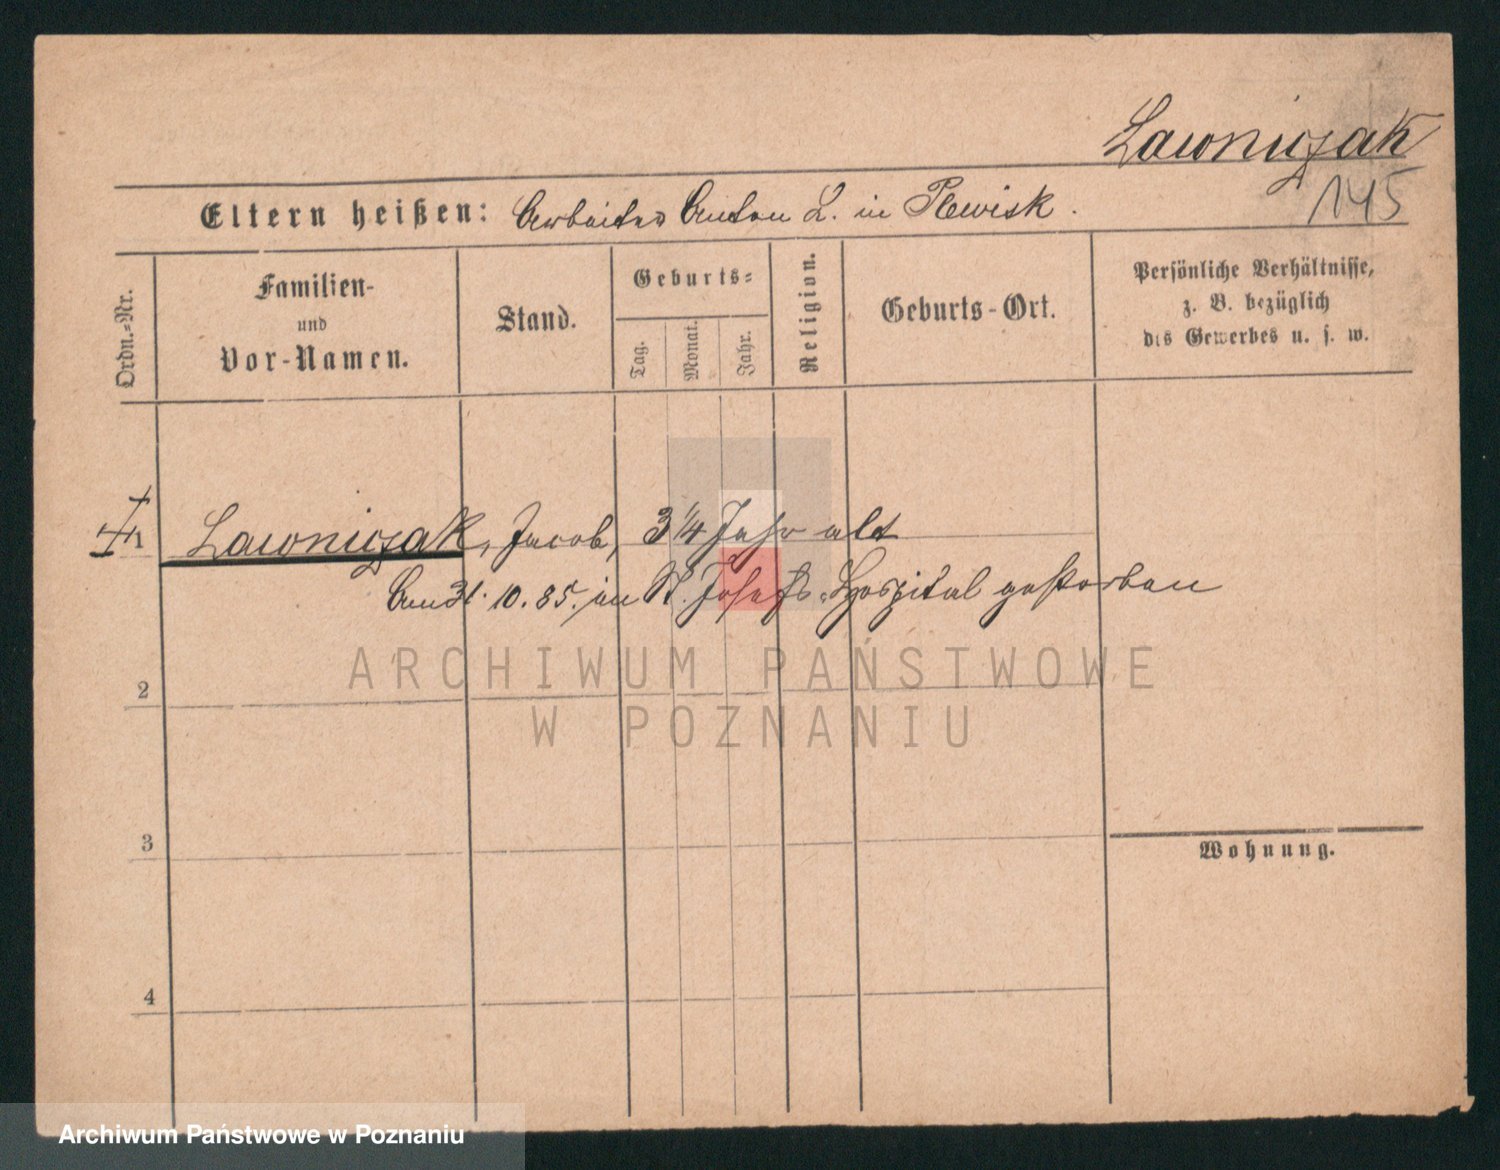 Lawniczak
145
Eltern heißen: Arbeiter Anton L. in Plewisk.
Ordn.-Nr.
Familien- und Vor-Namen.
Stand.
Geburts-
Tag.
Monat.
Jahr.
Religion.
Geburts-Ort.
Persönliche Verhältnisse, z. B. bezüglich des Gewerbes u. s. w.
1 Lawniczak, Jacob, 3 1/4 Jahr alt
Am 31. 10. 85. im St. Josefs-Hospital gestorben
ARCHIWUM PAŃSTWOWE
W POZNANIU
2
3
Wohnung.
4
Archiwum Państwowe w Poznaniu